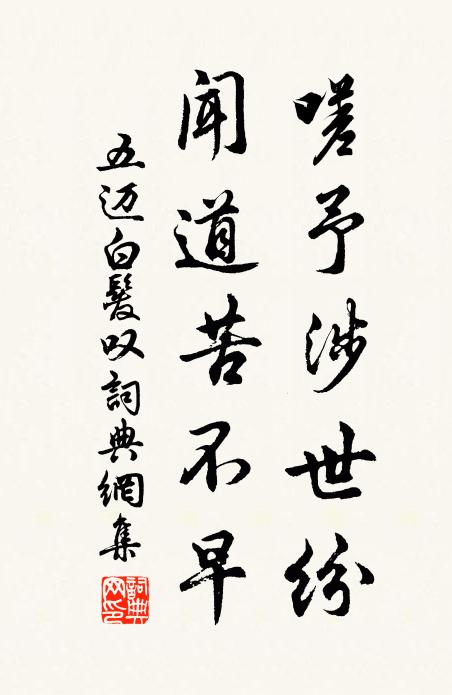 嗟予涉世紛
聞道苦不早
五迈白髮叹詞典網集
詞典网印